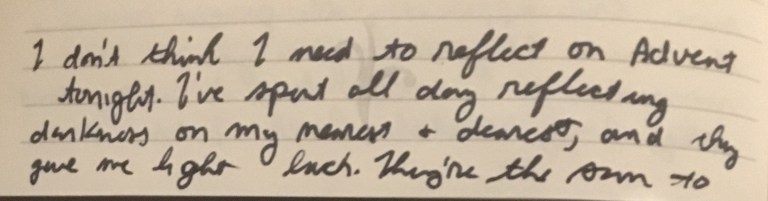 I don't think I need to reflect on Advent
tonight. I've spent all day reflecting
darkness on my nearest + dearest, and they
gave me light back. They're the sun to